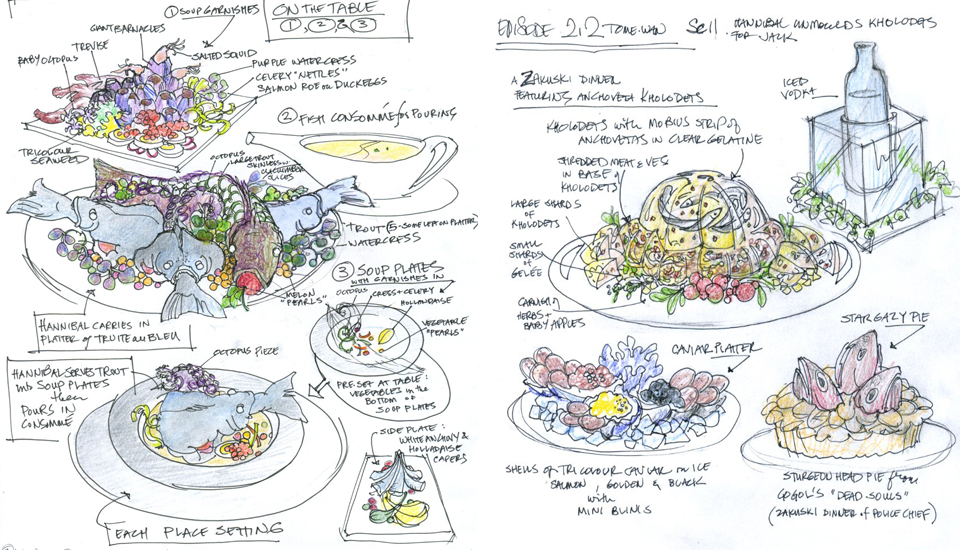 ① SOUP GARNISHES
ON THE TABLE
①, ② & ③
GIANT BARNACLES
TREVISE
BABY OCTOPUS
SALTED SQUID
PURPLE WATERCRESS
CELERY "NETTLES"
SALMON ROE on DUCK EGGS
② FISH CONSOMMÉ for POURING
TRICOLOUR
SEAWEED
OCTOPUS
LARGE TROUT
SKINLESS w
CUCUMBER
SLICES
TROUT (5 - SOME LEFT ON PLATTER)
WATERCRESS
MELON
"PEARLS"
③ SOUP PLATES
WITH GARNISHES IN
OCTOPUS
CRESS + CELERY &
HOLLANDAISE
VEGETABLE
"PEARLS"
HANNIBAL CARRIES IN
PLATTER of TRUITE au BLEU
PRE-SET AT TABLE:
VEGETABLES in the
BOTTOM of
SOUP PLATES
HANNIBAL SERVES TROUT
into SOUP PLATES
then
POURS IN
CONSOMME
OCTOPUS PIECE
SIDE PLATE:
WHITE ANCHOVY &
HOLLADAISE
CAPERS
EACH PLACE SETTING
EPISODE 2.2 TOME-WAN
HANNIBAL UNMOULDS KHOLODETS
FOR JACK
A ZAKUSKI DINNER
FEATURING ANCHOVETA KHOLODETS
ICED
VODKA
KHOLODETS with MOBIUS STRIP of
ANCHOVETAS IN CLEAR GELATINE
SHREDDED MEAT & VEG
IN BASE of
KHOLODETS
LARGE SHARDS
of
KHOLODETS
SMALL
SHARDS
of
GELÉE
GARNISH of
HERBS +
BABY APPLES
CAVIAR PLATTER
STARGAZY PIE
SHELLS of TRICOLOUR CAVIAR on ICE
SALMON, GOLDEN & BLACK
with
MINI BLINIS
STURGEON HEAD PIE from
GOGOL'S "DEAD SOULS"
(ZAKUSKI DINNER of POLICE CHIEF)